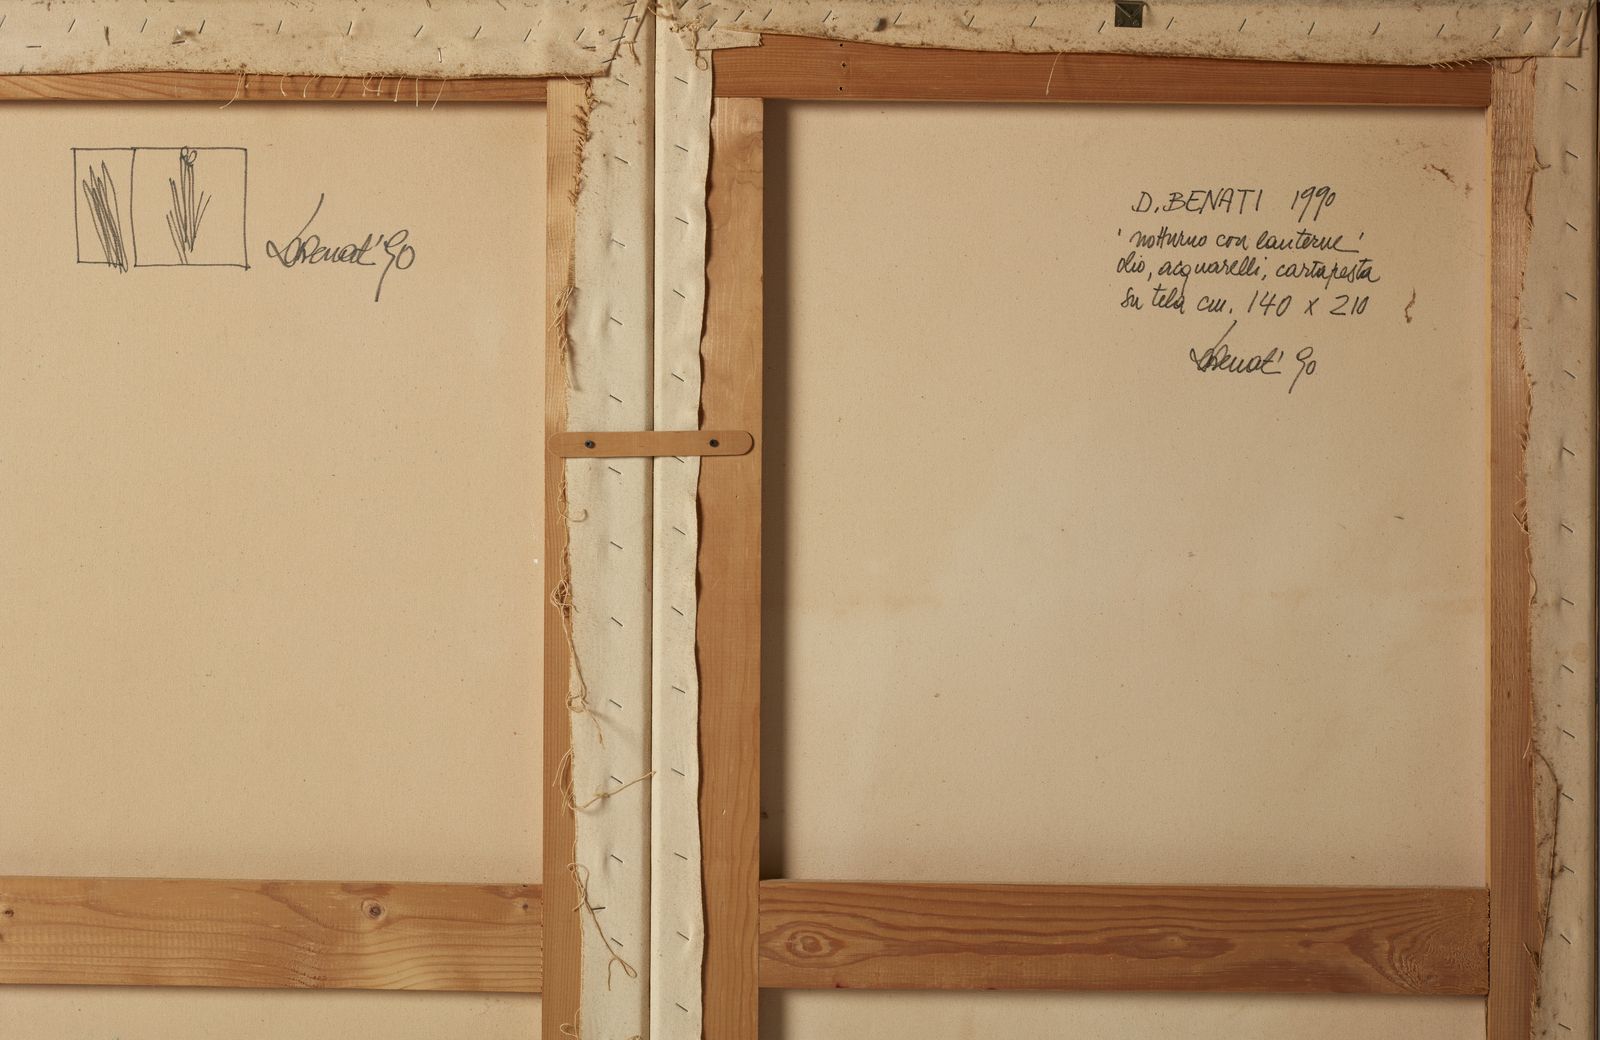 DBenati '90
D. BENATI 1990
'notturno con lanterne'
olio, acquarelli, cartapesta
su tela cm. 140 x 210
DBenati '90